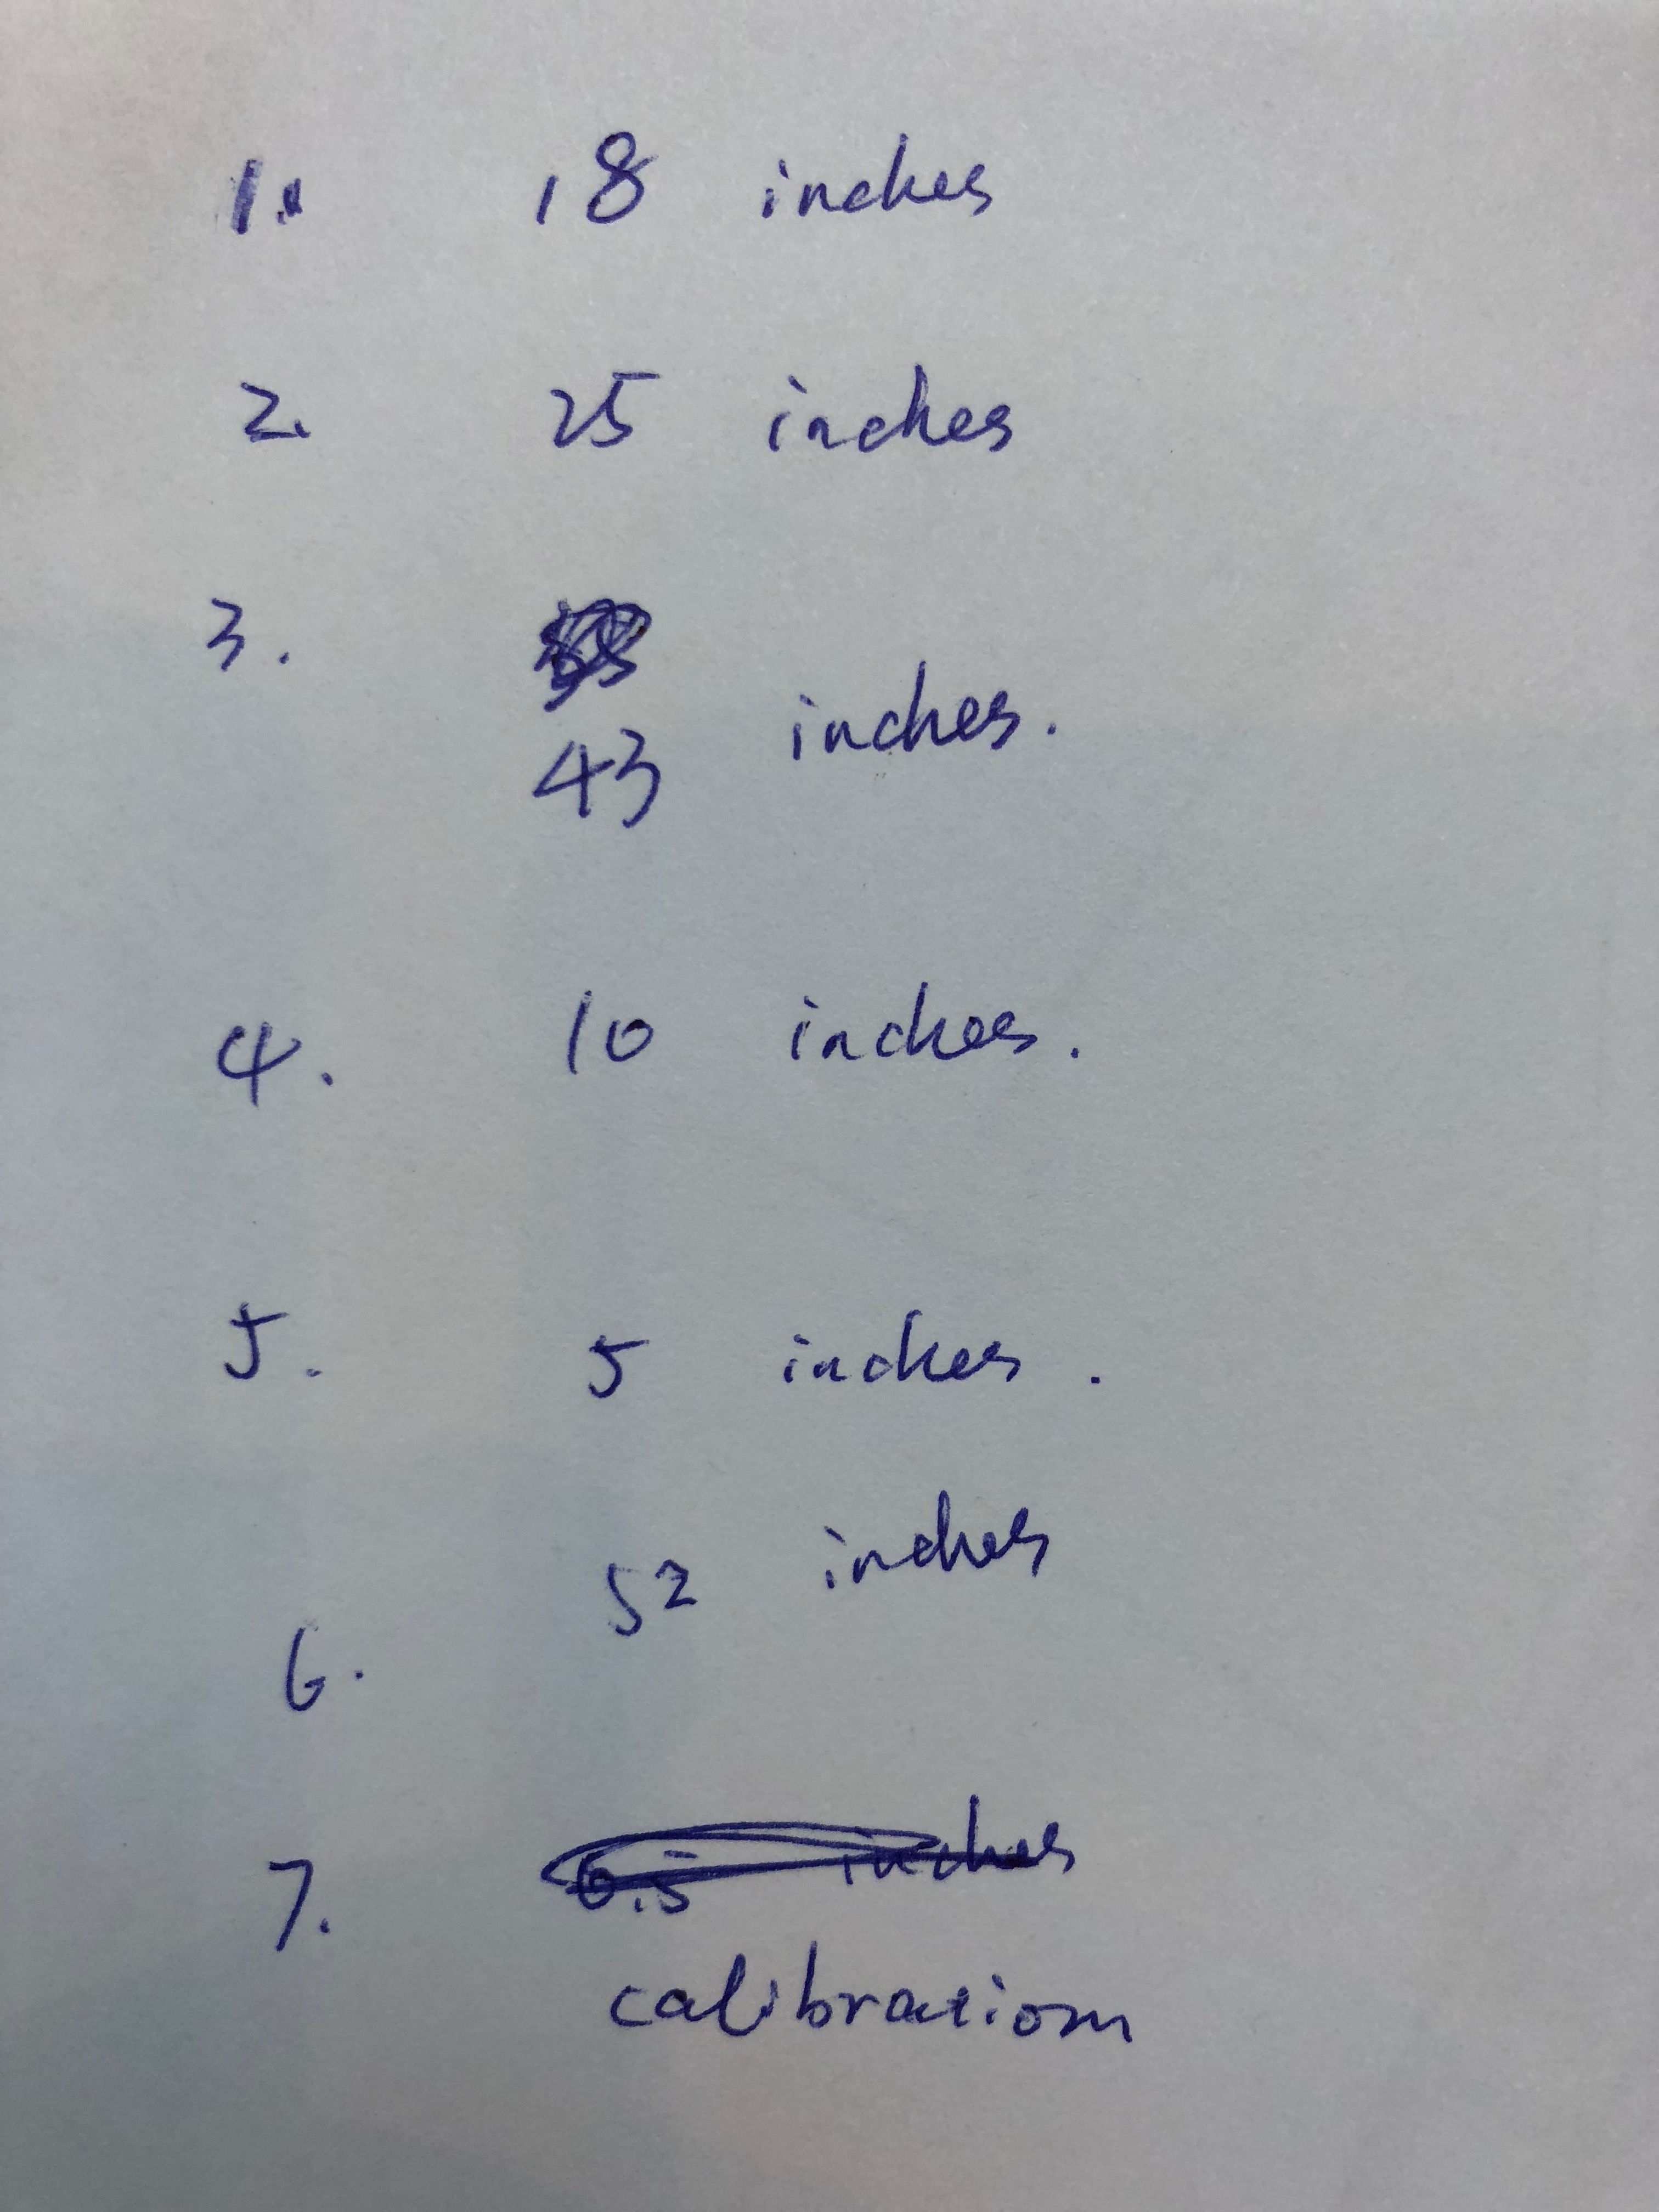 1. 18 inches
2. 25 inches
3.
43 inches.
4. 10 inches.
5. 5 inches.
6. 52 inches
7. 6.5 inches
calibration